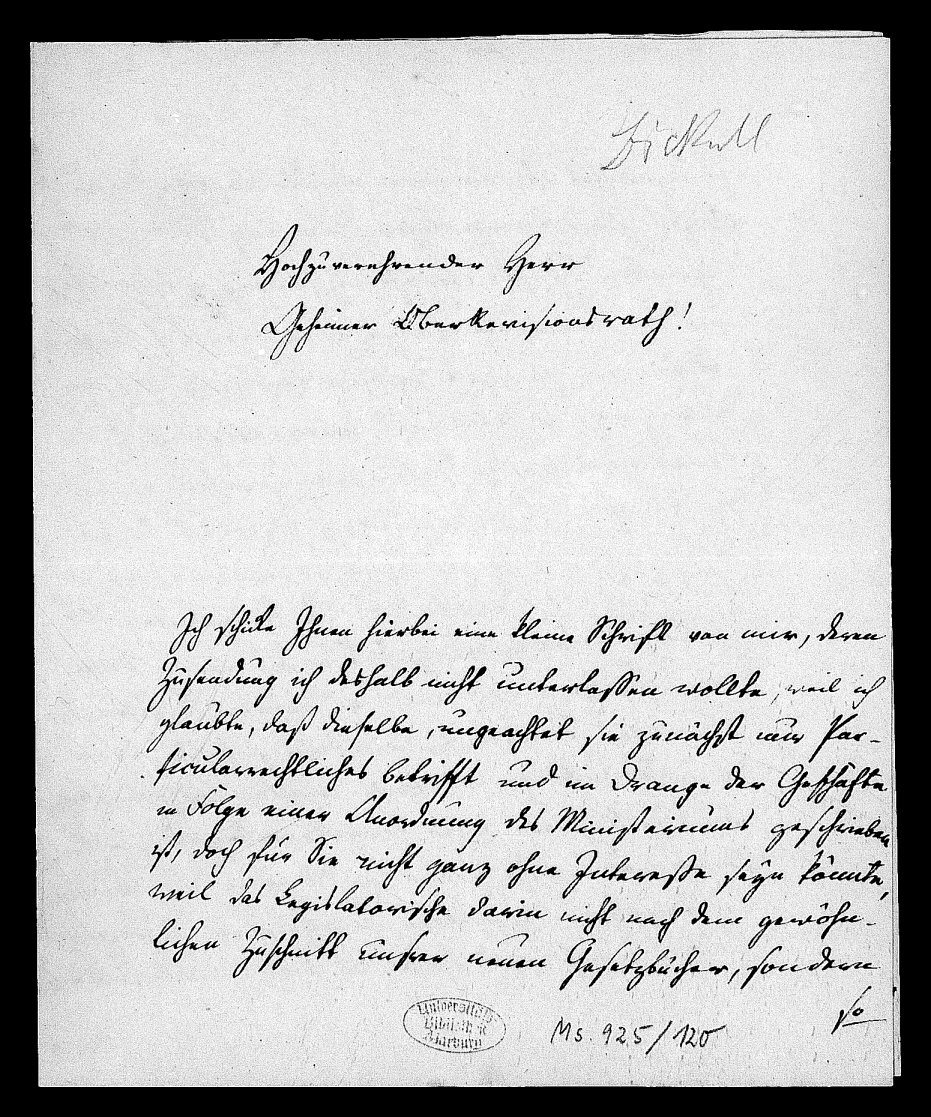 Bickell
Hochzuverehrender Herr
Geheimer OberRevisionsrath!
Ich schicke Ihnen hierbei eine kleine Schrift von mir, deren
Zusendung ich deshalb nicht unterlassen wollte, weil ich
glaubte, daß dieselbe, ungeachtet sie zunächst nur Par-
ticularrechtliches betrifft und im Drange der Geschäfte
in Folge einer Anordnung des Ministeriums geschrieben
ist, doch für Sie nicht ganz ohne Interesse seyn könnte,
weil das Legislatorische darin nicht nach dem gewöhn-
lichen Zuschnitt unsrer neuen Gesetzbücher, sondern
so
Universitäts
Bibliothek
Marburg
Ms. 925/120